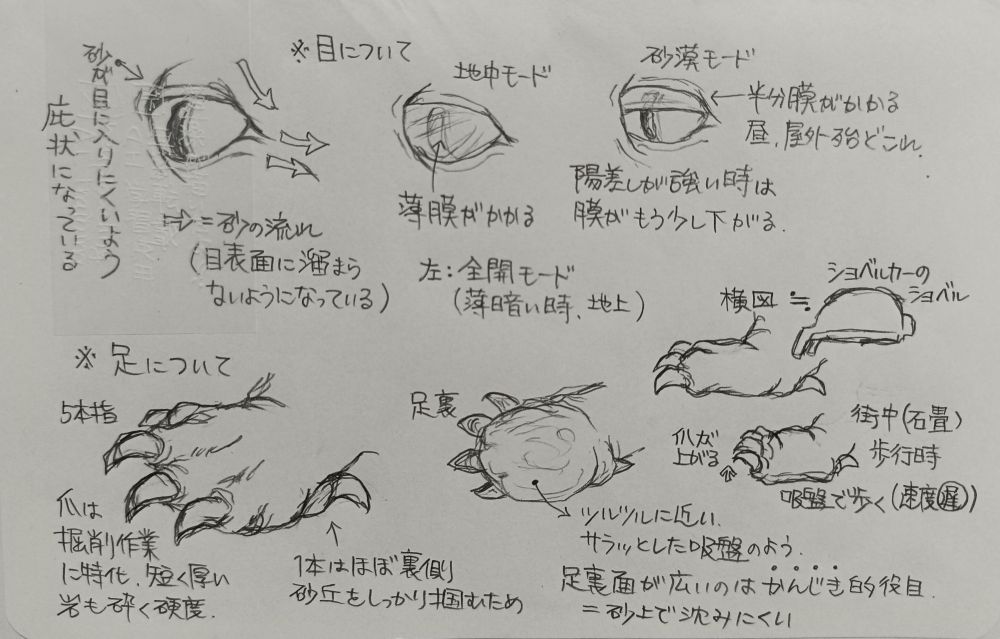 ※目について
砂が目に入りにくいよう
庇状になっている
⇨=砂の流れ
(目表面に溜まら
ないようになっている)
地中モード
薄膜がかかる
左:全開モード
(薄暗い時、地上)
砂漠モード
←半分膜がかかる
昼、屋外殆どこれ.
陽差しが強い時は
膜がもう少し下がる.
※足について
5本指
爪は
掘削作業
に特化、短く厚い
岩も砕く硬度.
1本はほぼ裏側
砂丘をしっかり掴むため
足裏
ツルツルに近い.
サラッとした吸盤のよう.
足裏面が広いのはかんじき的役目.
=砂上で沈みにくい
横図≒
ショベルカーの
ショベル
爪が
上がる
街中(石畳)
歩行時
吸盤で歩く(速度遅)